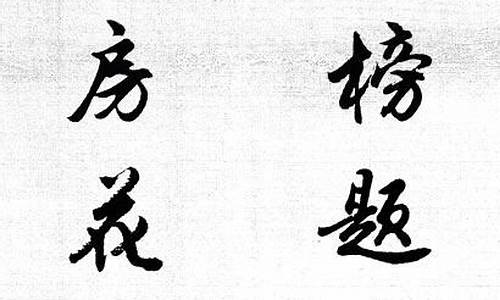 榜题
房花